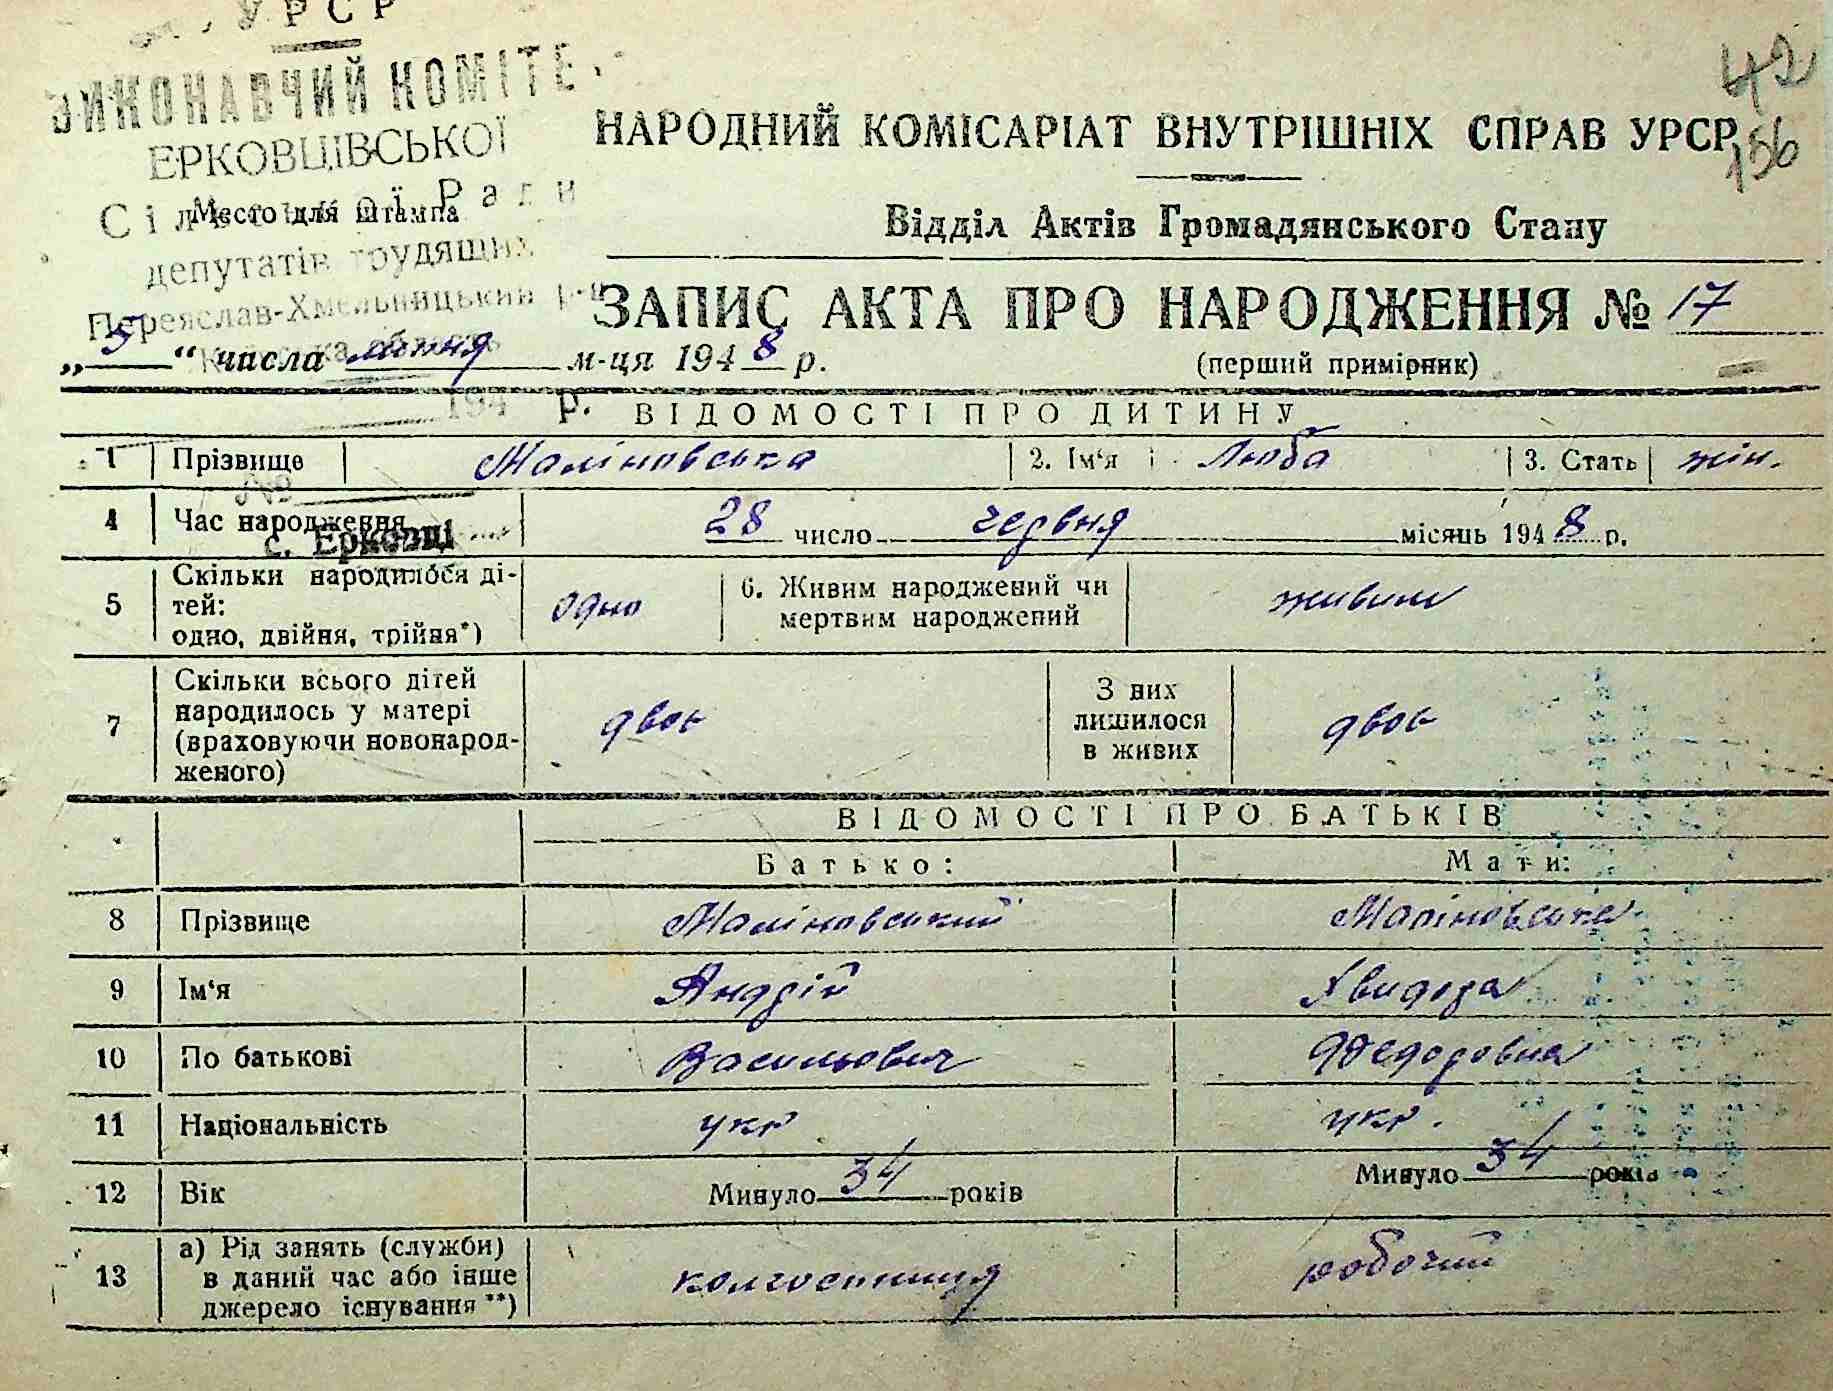 УРСР
ВИКОНАВЧИЙ КОМІТЕ
ЕРКОВЦІВСЬКОЇ
Сільської Ради
Место для штампа
депутатів трудящих
Переяслав-Хмельницький р-н
Київська область
194 р.
№
с. Ерковці
42
156
НАРОДНИЙ КОМІСАРІАТ ВНУТРІШНІХ СПРАВ УРСР
Відділ Актів Громадянського Стану
ЗАПИС АКТА ПРО НАРОДЖЕННЯ № 17
(перший примірник)
„5“ числа липня м-ця 1948 р.
ВІДОМОСТІ ПРО ДИТИНУ
1 Прізвище Маліновська 2. Ім'я Люба 3. Стать жін.
4 Час народження 28 число червня місяць 1948 р.
5 Скільки народилося ді-
тей:
одно, двійня, трійня*) одно
6. Живим народжений чи
мертвим народжений живим
7 Скільки всього дітей
народилось у матері
(враховуючи новонарод-
женого) двоє
З них
лишилося
в живих двоє
ВІДОМОСТІ ПРО БАТЬКІВ
Батько: Мати:
8 Прізвище Маліновський Маліновська
9 Ім'я Андрій Хвидора
10 По батькові Васильович Федоровна
11 Національність укр укр.
12 Вік Минуло 34 років Минуло 34 років
13 а) Рід занять (служби)
в даний час або інше
джерело існування **) колгоспниця робочий